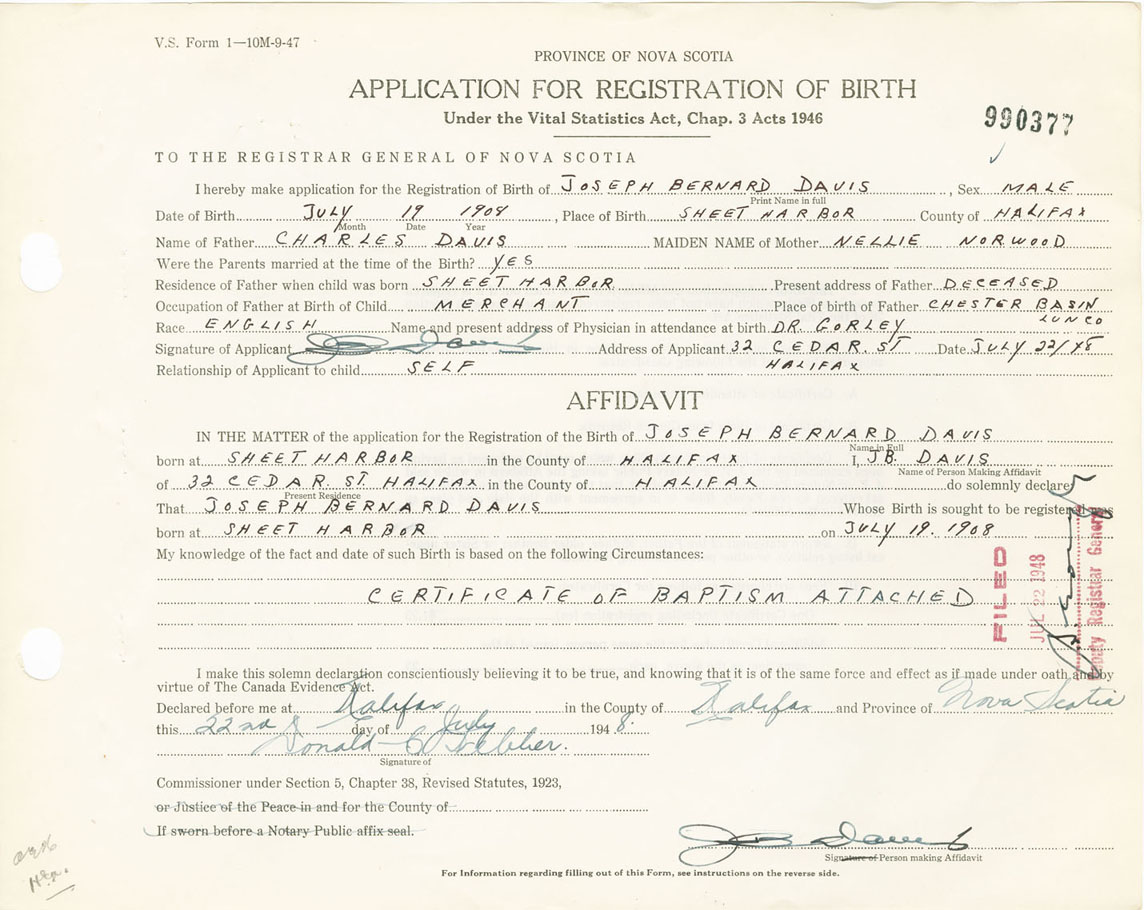 V.S. Form 1—10M-9-47
PROVINCE OF NOVA SCOTIA
APPLICATION FOR REGISTRATION OF BIRTH
Under the Vital Statistics Act, Chap. 3 Acts 1946
990377
TO THE REGISTRAR GENERAL OF NOVA SCOTIA
I hereby make application for the Registration of Birth of JOSEPH BERNARD DAVIS, Sex MALE
Print Name in full
Date of Birth JULY 19 1908, Place of Birth SHEET HARBOR County of HALIFAX
Month Date Year
Name of Father CHARLES DAVIS MAIDEN NAME of Mother NELLIE NORWOOD
Were the Parents married at the time of the Birth? YES
Residence of Father when child was born SHEET HARBOR Present address of Father DECEASED
Occupation of Father at Birth of Child MERCHANT Place of birth of Father CHESTER BASIN
LUN CO
Race ENGLISH Name and present address of Physician in attendance at birth DR. GORLEY
Signature of Applicant J B Davis Address of Applicant 32 CEDAR. ST Date JULY 22/48
Relationship of Applicant to child SELF HALIFAX
AFFIDAVIT
IN THE MATTER of the application for the Registration of the Birth of JOSEPH BERNARD DAVIS
Name in Full
born at SHEET HARBOR in the County of HALIFAX I, J.B. DAVIS
Name of Person Making Affidavit
of 32 CEDAR. ST. HALIFAX in the County of HALIFAX do solemnly declare
Present Residence
That JOSEPH BERNARD DAVIS Whose Birth is sought to be registered was
born at SHEET HARBOR on JULY 19. 1908
My knowledge of the fact and date of such Birth is based on the following Circumstances:
CERTIFICATE OF BAPTISM ATTACHED
FILED
JUL 22 1948
Deputy Registrar General
I make this solemn declaration conscientiously believing it to be true, and knowing that it is of the same force and effect as if made under oath and by
virtue of The Canada Evidence Act.
Declared before me at Halifax in the County of Halifax and Province of Nova Scotia
this 22nd day of July 1948.
Donald C Webber.
Signature of
Commissioner under Section 5, Chapter 38, Revised Statutes, 1923,
or Justice of the Peace in and for the County of
If sworn before a Notary Public affix seal.
J B Davis
Signature of Person making Affidavit
For Information regarding filling out of this Form, see instructions on the reverse side.